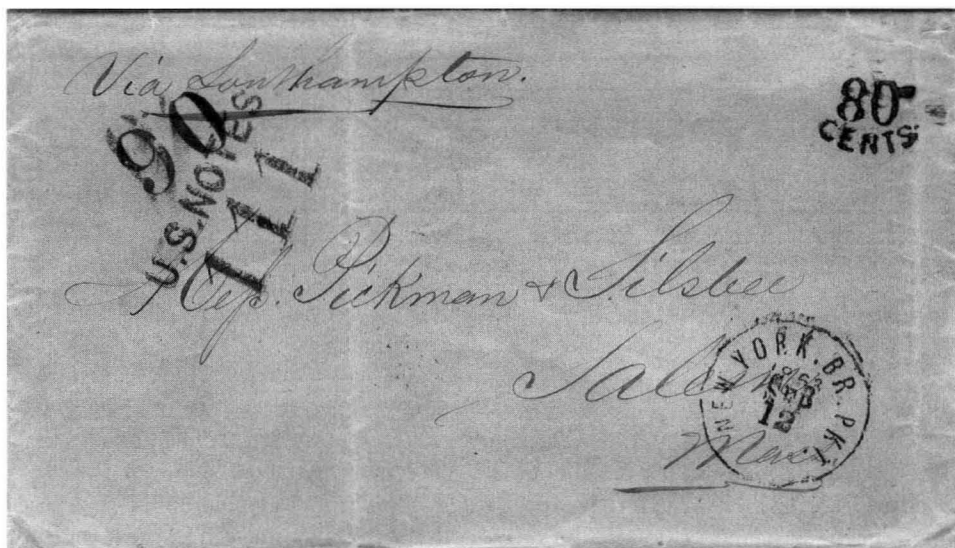 Via Southampton.
80
CENTS
90
U.S. NOTES
111
Pickman & Silsbee
Salem
NEW YORK. BR. PKT
SEP
12